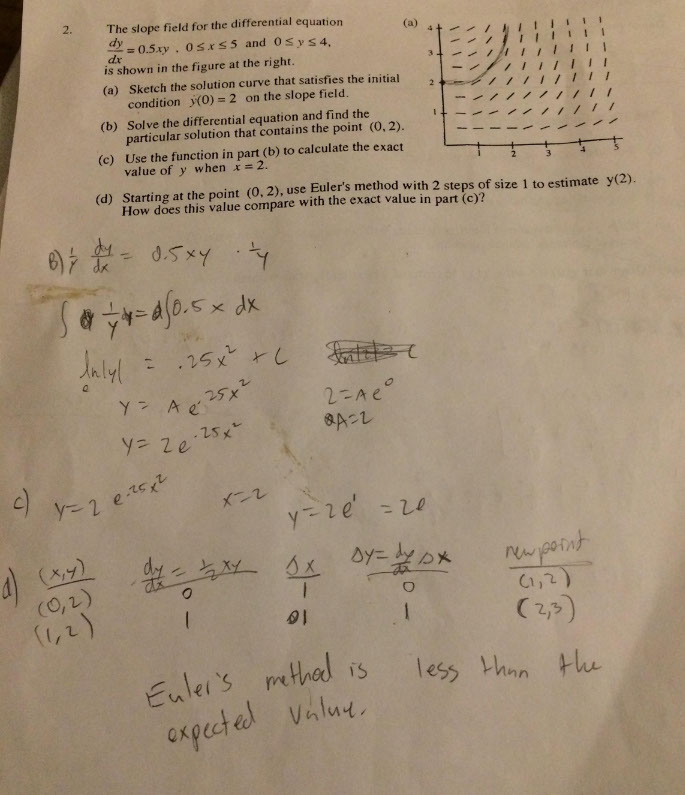 2. The slope field for the differential equation
dy/dx = 0.5xy , 0 ≤ x ≤ 5 and 0 ≤ y ≤ 4,
is shown in the figure at the right.
(a) Sketch the solution curve that satisfies the initial
condition y(0) = 2 on the slope field.
(b) Solve the differential equation and find the
particular solution that contains the point (0, 2).
(c) Use the function in part (b) to calculate the exact
value of y when x = 2.
(a)
4
3
2
1
1 2 3 4 5
(d) Starting at the point (0, 2), use Euler's method with 2 steps of size 1 to estimate y(2).
How does this value compare with the exact value in part (c)?
B) 1/y dy/dx = 0.5xy · 1/y
∫ 1/y = ∫0.5x dx
ln|y| = .25x² + C
y = A e^.25x² 2=Ae⁰
A=2
y = 2e^.25x²
c) y=2 e^.25x² x=2 y=2e¹ = 2e
d) (x,y) dy/dx = ½xy Δx Δy = dy/dx Δx new point
(0,2) 0 1 0 (1,2)
(1,2) 1 1 1 (2,3)
Euler's method is less than the
expected value.